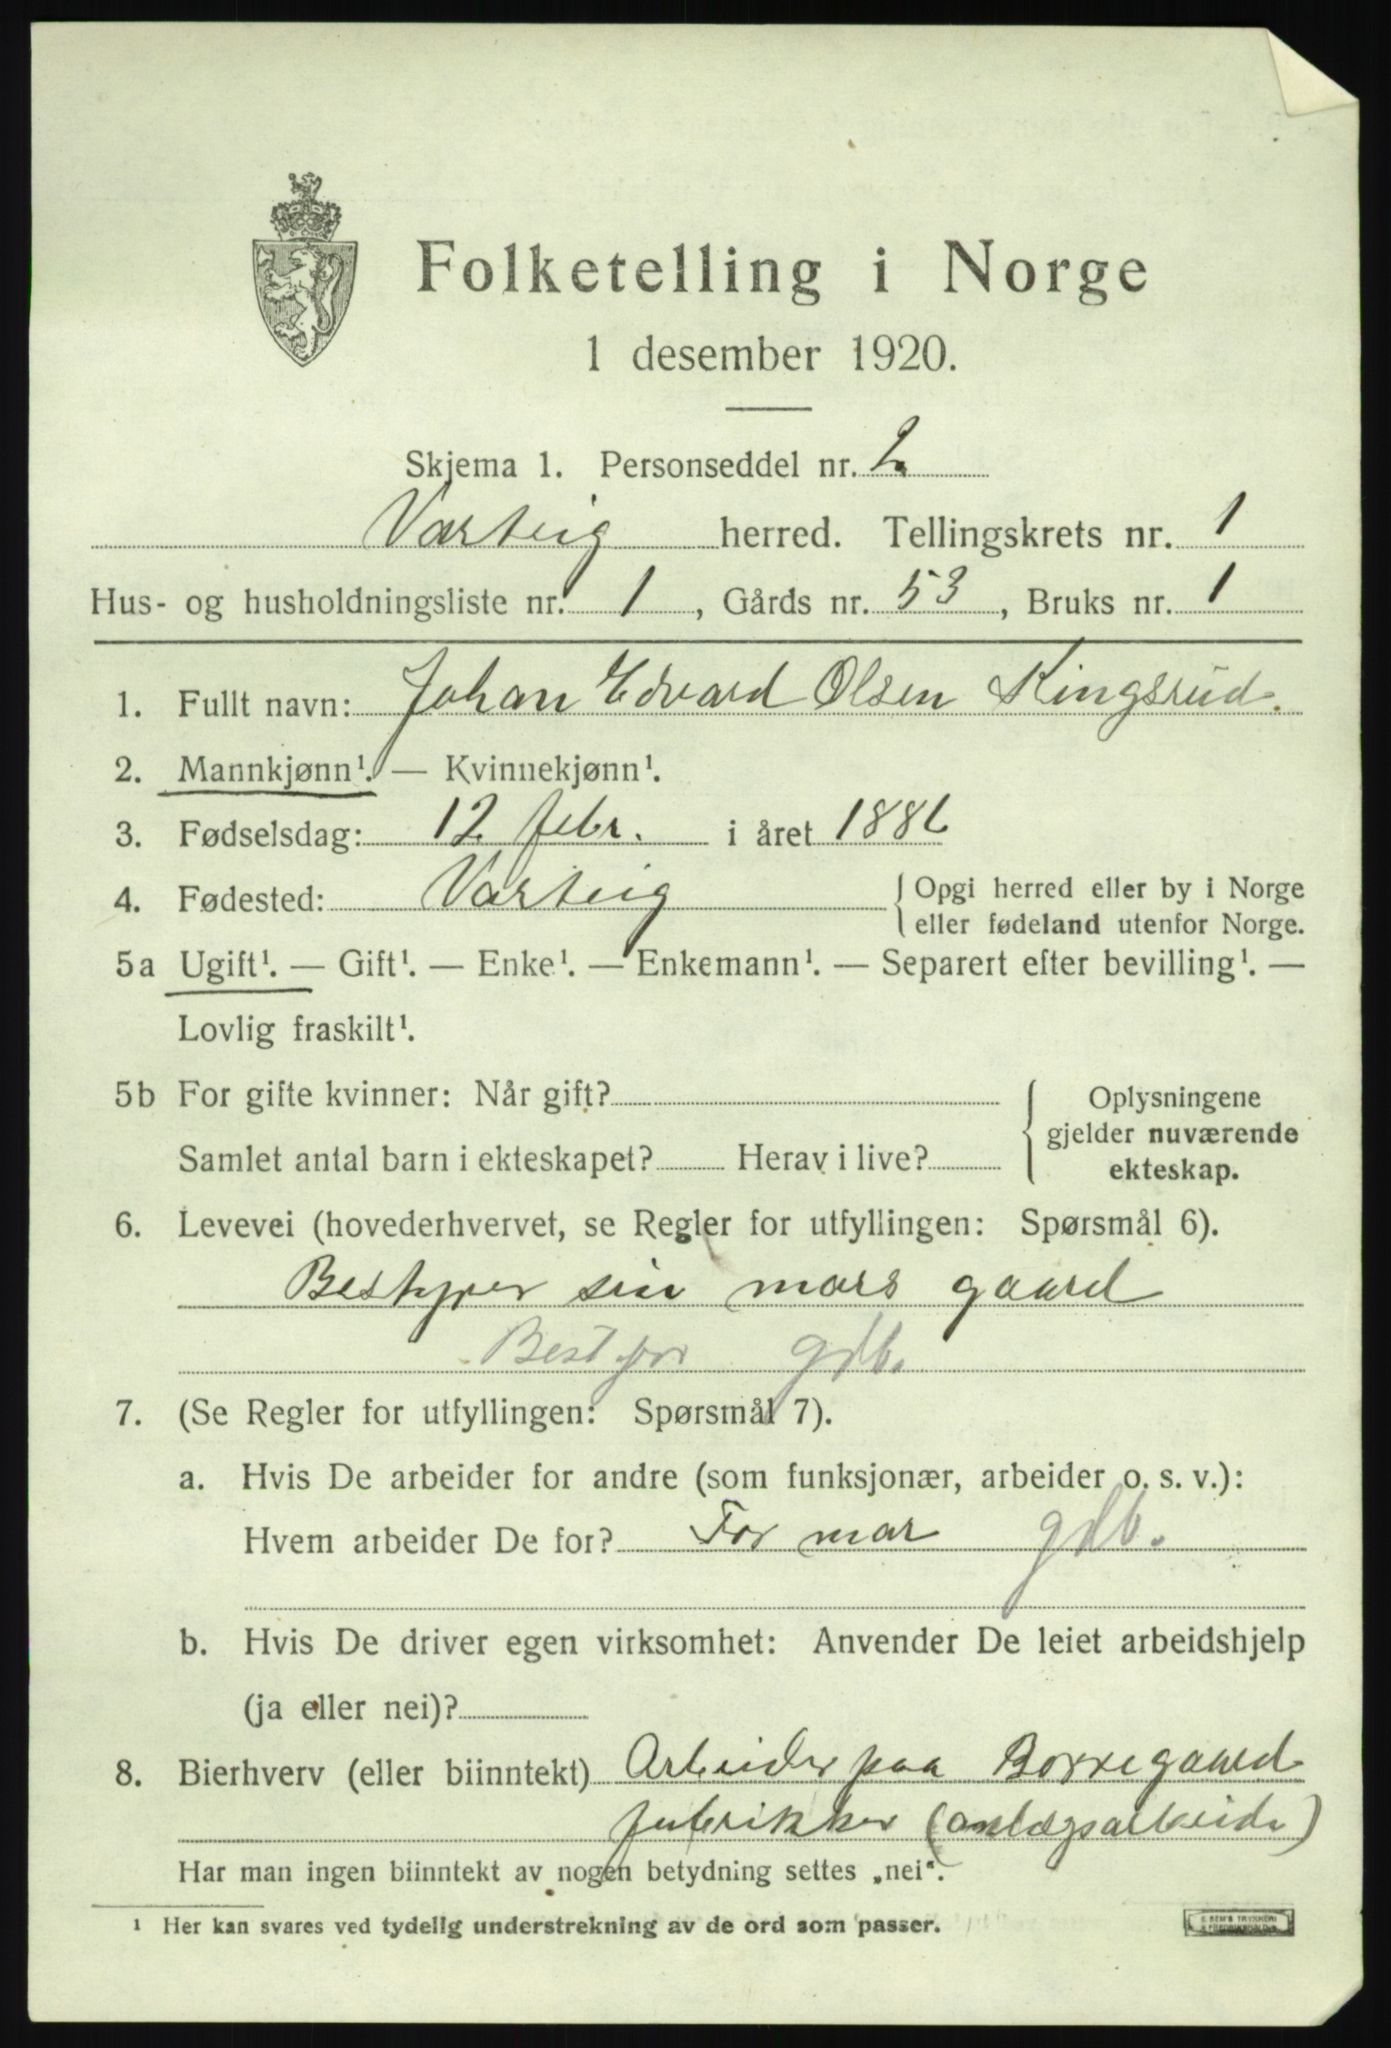 Folketelling i Norge
1 desember 1920.
Skjema 1. Personseddel nr. 2
Varteig herred. Tellingskrets nr. 1
Hus- og husholdningsliste nr. 1, Gårds nr. 53, Bruks nr. 1
1. Fullt navn: Johan Edvard Olsen Kingsrud.
2. Mannkjønn¹. — Kvinnekjønn¹.
3. Fødselsdag: 12 febr. i året 1886
4. Fødested: Varteig { Opgi herred eller by i Norge
eller fødeland utenfor Norge.
5a Ugift¹. — Gift¹. — Enke¹. — Enkemann¹. — Separert efter bevilling¹. —
Lovlig fraskilt¹.
5b For gifte kvinner: Når gift?
Samlet antal barn i ekteskapet? Herav i live?
{ Oplysningene
gjelder nuværende
ekteskap.
6. Levevei (hovederhvervet, se Regler for utfyllingen: Spørsmål 6).
Bestyrer sin mors gaard
Bestyrer gdb.
7. (Se Regler for utfyllingen: Spørsmål 7).
a. Hvis De arbeider for andre (som funksjonær, arbeider o. s. v.):
Hvem arbeider De for? For mor gdb.
b. Hvis De driver egen virksomhet: Anvender De leiet arbeidshjelp
(ja eller nei)?
8. Bierhverv (eller biinntekt) Arbeider paa Borregaard
fabrikker (anlægsarbeider)
Har man ingen biinntekt av nogen betydning settes „nei“.
¹ Her kan svares ved tydelig understrekning av de ord som passer.